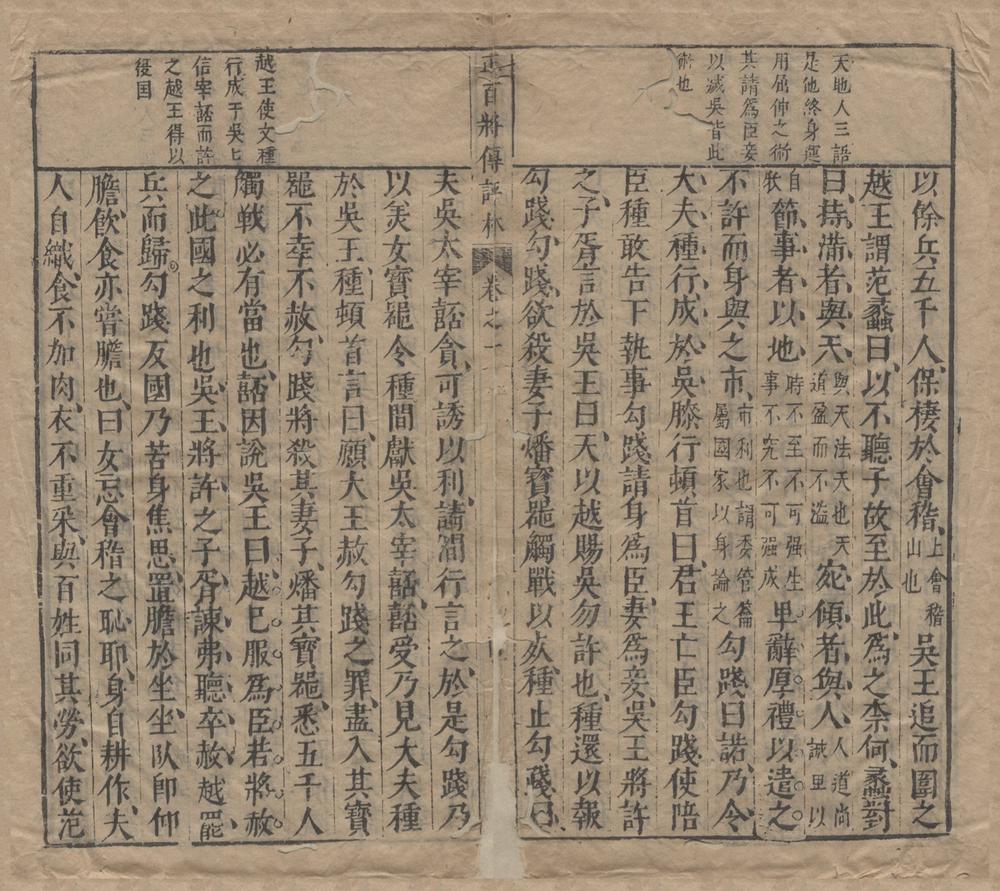 天地人三語
是他終身運
用屈伸之術
其請為臣妾
以滅吳皆此
術也
以餘兵五千人保棲於會稽上會稽山也吳王追而圍之
越王謂范蠡曰以不聽子故至於此為之柰何蠡對
曰持滿者與天與天法天也天道盈而不溢定傾者與人人道尚誠卑以
自牧節事者以地時不至不可强生事不究不可强成卑辭厚禮以遣之
不許而身與之市市利也謂委管籥屬國家以身論之勾踐曰諾乃令
大夫種行成於吳膝行頓首曰君王亡臣勾踐使陪
臣種敢告下執事勾踐請身為臣妻為妾吳王將許
之子胥言於吳王曰天以越賜吳勿許也種還以報
勾踐勾踐欲殺妻子燔寳噐觸戰以𣦸種止勾踐曰
正百將傳評林 卷之一
越王使文種
行成于吳七
信宰嚭而許
之越王得以
侵国
夫吳太宰嚭貪可誘以利請間行言之於是勾踐乃
以美女寳噐令種間獻吳太宰嚭嚭受乃見大夫種
於吳王種頓首言曰願大王赦勾踐之罪盡入其寳
噐不幸不赦勾踐將殺其妻子燔其寳噐悉五千人
觸戰必有當也嚭因說吳王曰越已服為臣若將赦
之此國之利也吳王將許之子胥諫弗聽卒赦越罷
兵而歸勾踐反國乃苦身焦思置膽於坐坐臥即仰
膽飲食亦嘗膽也曰女忘會稽之恥耶身自耕作夫
人自織食不加肉衣不重采與百姓同其勞欲使范